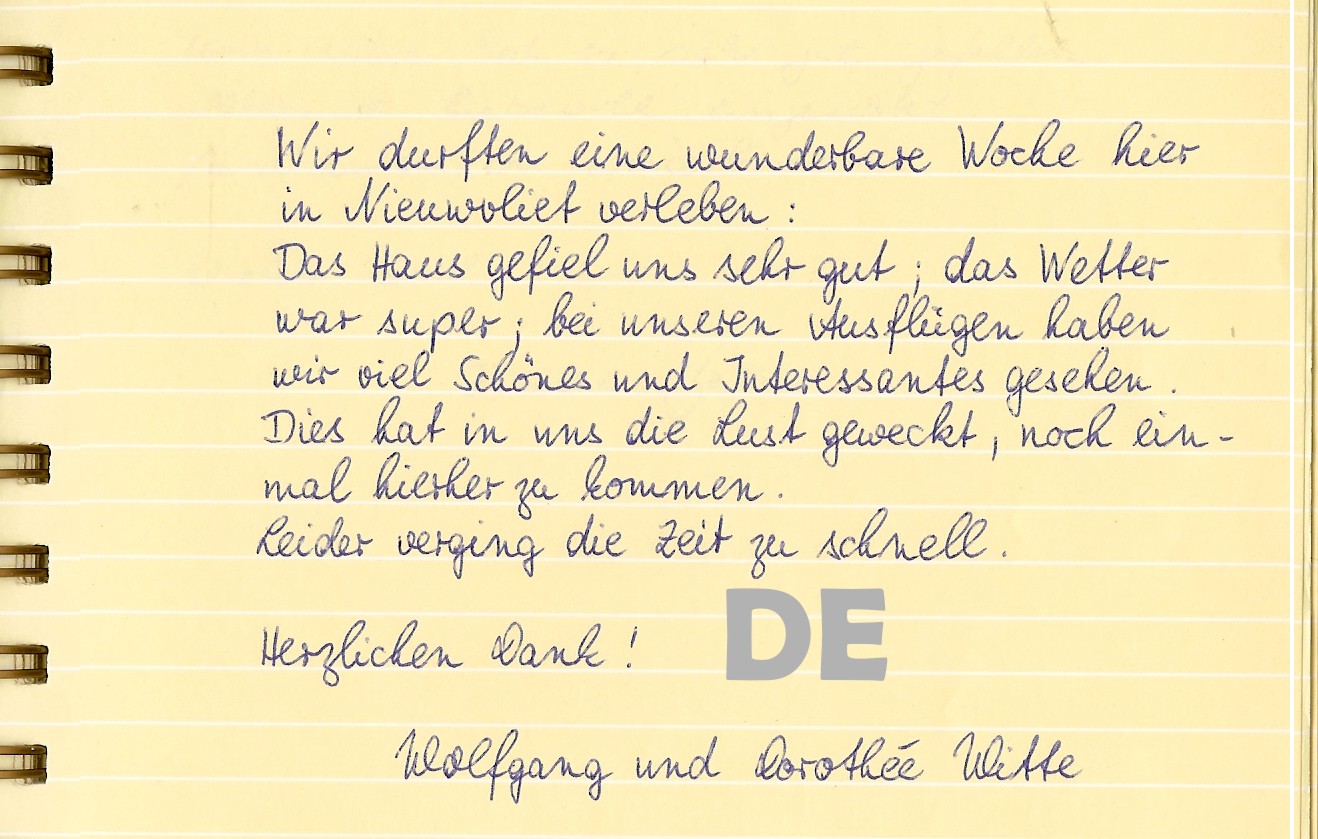 Wir durften eine wunderbare Woche hier
in Nieuwvliet verleben :
Das Haus gefiel uns sehr gut ; das Wetter
war super ; bei unseren Ausflügen haben
wir viel Schönes und Interessantes gesehen .
Dies hat in uns die Lust geweckt , noch ein-
mal hierher zu kommen .
Leider verging die Zeit zu schnell .
DE
Herzlichen Dank !
Wolfgang und Dorothée Witte